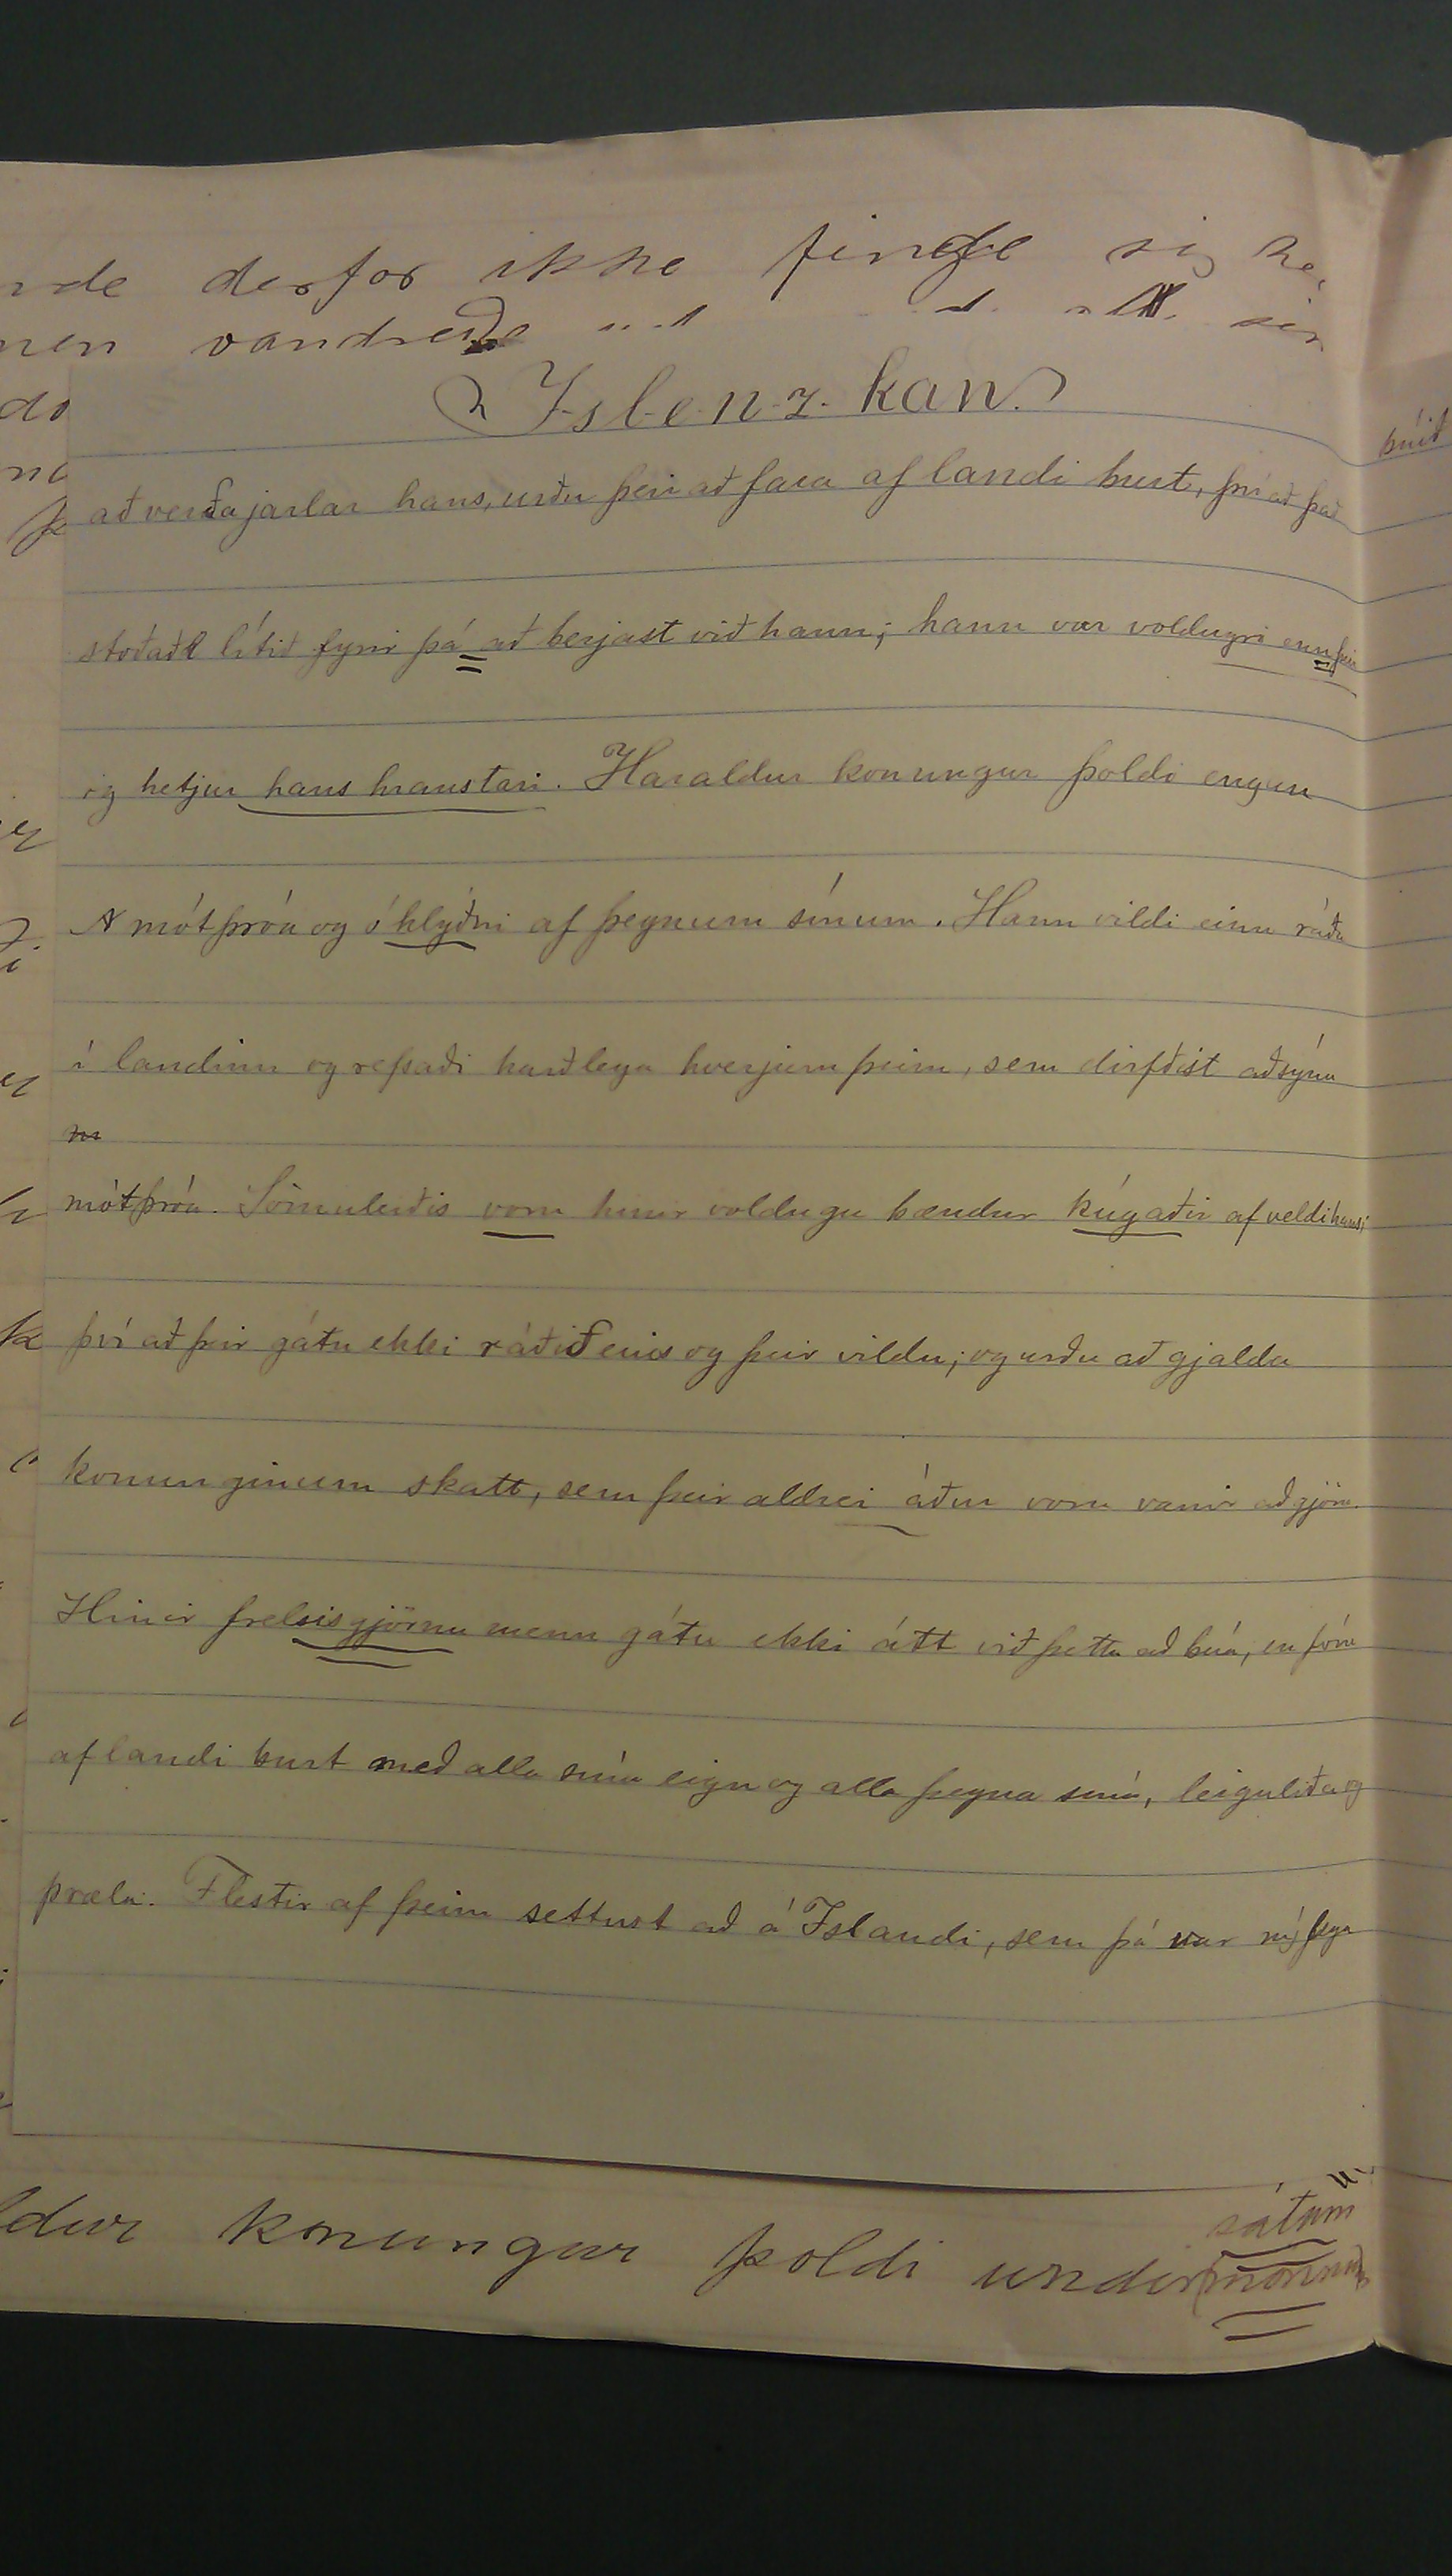 nde derfor ikke finde sig
nen vandrede
Islenzkan.
að verða jarlar hans, urðu þeir að fara af landi burt, því að það
stoðaði lítið fyrir þá að berjast við hann; hann var voldugri enn þeir
og hetjur hans hraustari. Haraldur konungur þoldi engan
mótþróa og óhlýðni af þegnum sínum. Hann vildi einn ráða
í landinu og refsaði harðlega hverjum þeim, sem dirfðist að sýna
mótþróa. Sömuleiðis voru hinir voldugu bændur kúgaðir af veldi hans;
því að þeir gátu ekki ráðið eins og þeir vildu; og urðu að gjalda
konunginum skatt, sem þeir aldrei áður voru vanir að gjöra.
Hinir frelsisgjörnu menn gátu ekki átt við þetta að búa, en fóru
af landi burt með alla sína eign og alla þegna sína, leiguliða og
þræla. Flestir af þeim settust að á Íslandi, sem þá var
sátum
ldur konungur þoldi undir